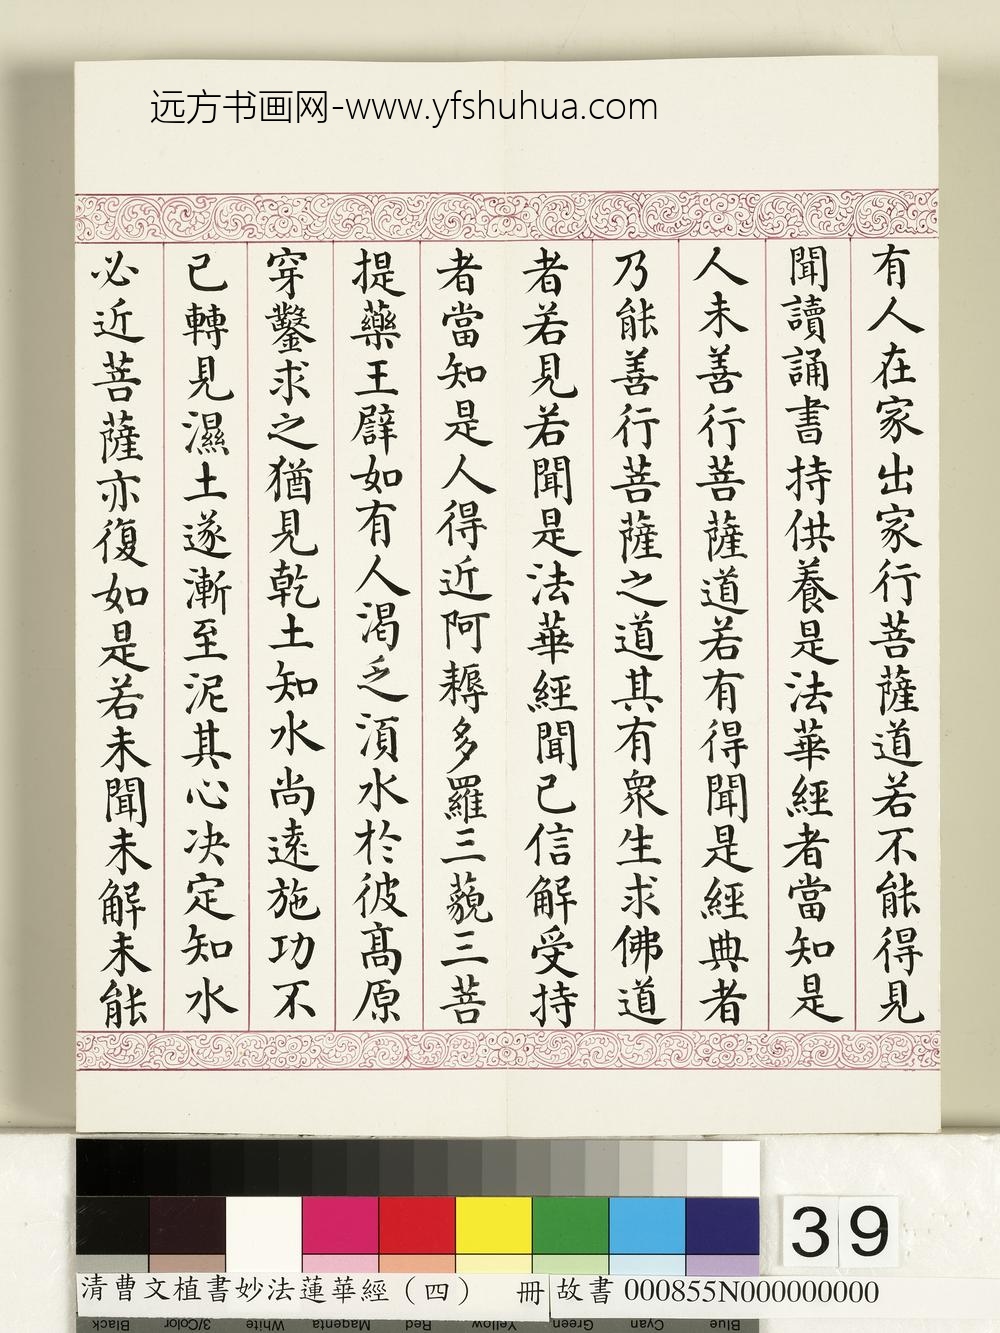 远方书画网-www.yfshuhua.com
有人在家出家行菩薩道若不能得見
聞讀誦書持供養是法華經者當知是
人未善行菩薩道若有得聞是經典者
乃能善行菩薩之道其有衆生求佛道
者若見若聞是法華經聞已信解受持
者當知是人得近阿耨多羅三藐三菩
提藥王譬如有人渴乏湏水於彼髙原
穿鑿求之猶見乾土知水尚遠施功不
已轉見濕土遂漸至泥其心决定知水
必近菩薩亦復如是若未聞未解未能
39
清曹文植書妙法蓮華經（四） 冊
故書 000855N000000000
Black 3/Color White Magenta Red Yellow Green Cyan Blue